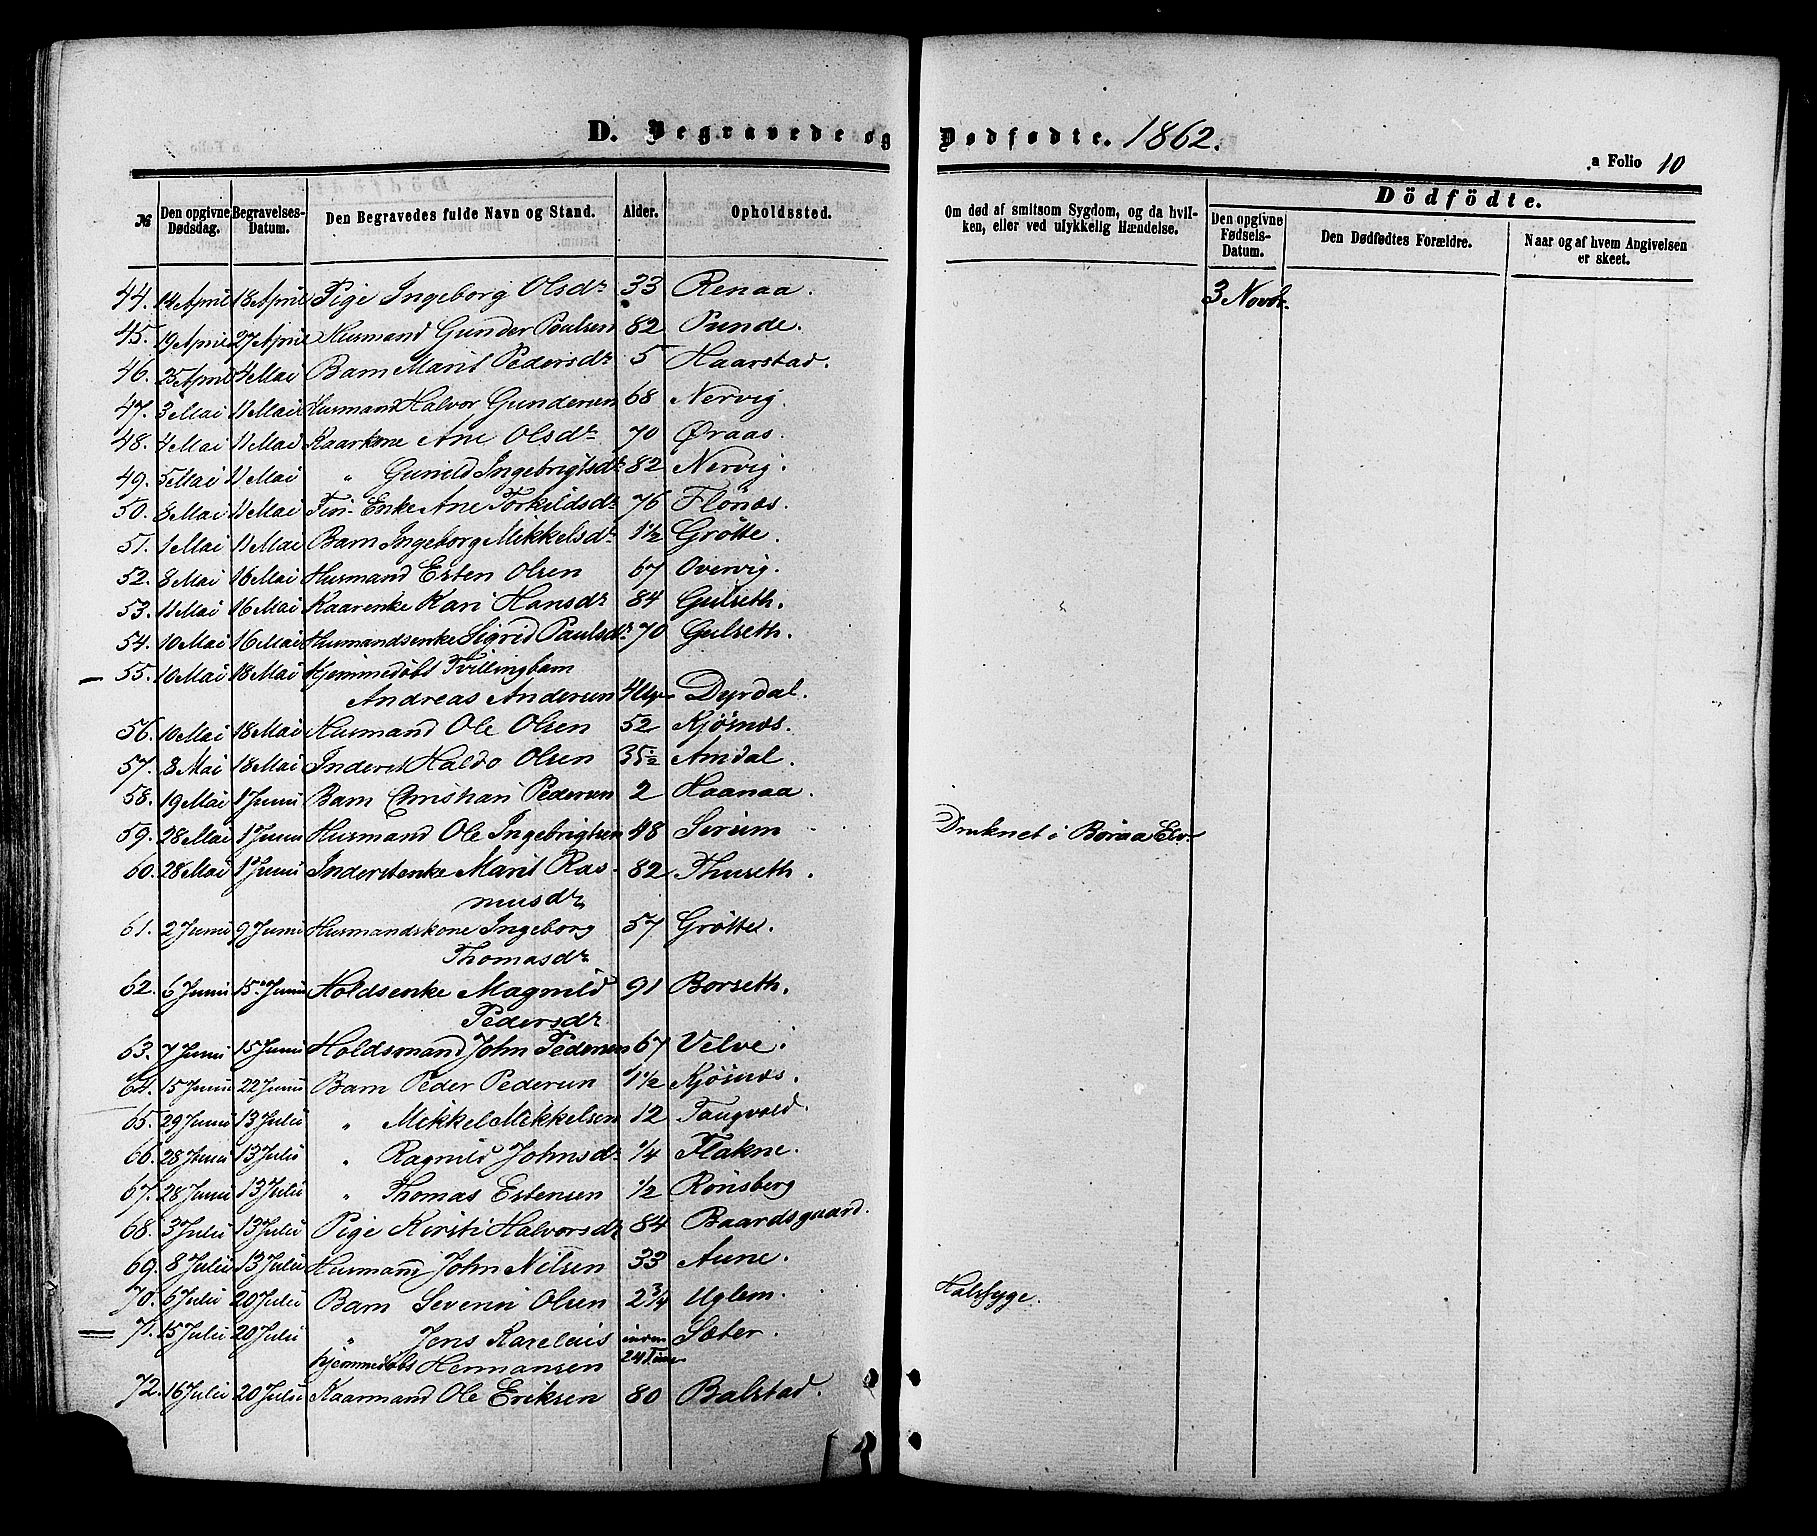 D. Begravede og Dødfødte. 1862.
a Folio 10
№ Den opgivne Dødsdag. Begravelses-Datum. Den Begravedes fulde Navn og Stand. Alder. Opholdssted.
Om død af smitsom Sygdom, og da hvil-
ken, eller ved ulykkelig Hændelse.
Dödfödte.
Den opgivne Fødsels-Datum. Den Dødfødtes Forældre. Naar og af hvem Angivelsen er skeet.
44. 14 April 18 April Pige Ingeborg Olsdr 33 Renaa. 3 Novbr.
45. 19 April 27 April Husmand Gunder Paulsen 82 Punde.
46. 25 April 4 Mai Barn Marit Pedersdr 5 Haarstad.
47. 3 Mai 11 Mai Husmand Halvor Gundersen 68 Nervig.
48. 4 Mai 11 Mai Kaarkone Ane Olsdr 70 Øraas.
49. 5 Mai 11 Mai " Gunild Ingebrigtsdr 82 Nervig.
50. 8 Mai 11 Mai Enke Ane Torkildsdr 76 Flönæs.
51. 1 Mai 11 Mai Barn Ingeborg Mikkelsdr 1½ Grötte.
52. 8 Mai 16 Mai Husmand Esten Olsen 67 Overvig.
53. 11 Mai 16 Mai Kaarenke Kari Hansdr 84 Gulseth.
54. 10 Mai 16 Mai Husmandsenke Sigrid Paulsdr 70 Gulseth.
55. 10 Mai 18 Mai Hjemmedøbt Tvillingbarn
Andreas Andersen 4 Dyrdal.
56. 10 Mai 18 Mai Husmand Ole Olsen 52 Kjösnæs.
57. 8 Mai 18 Mai Inderst Haldo Olsen 35½ Amdal.
58. 19 Mai 1 Juni Barn Christian Pedersen 2 Haanaa.
59. 28 Mai 1 Juni Husmand Ole Ingebrigtsen 48 Serum Druknet i Boraa Elv.
60. 28 Mai 1 Juni Inderstenke Marit Ras-
musdr 82 Thuseth.
61. 2 Juni 9 Juni Husmandskone Ingeborg
Thomasdr 57 Grötte.
62. 6 Juni 15 Juni Holdsenke Magnild
Pedersdr 91 Borseth.
63. 7 Juni 15 Juni Holdsmand John Pedersen 67 Velve.
64. 15 Juni 22 Juni Barn Peder Pedersen 1½ Kjösnæs.
65. 29 Juni 13 Julii " Mikkel Mikkelsen 12 Taugvold.
66. 28 Juni 13 Julii " Ragnild Johnsdr 1/4 Flakne.
67. 28 Juni 13 Julii " Thomas Estensen 1/2 Rönsberg
68. 3 Julii 13 Julii Pige Kirsti Halvorsdr 84 Baardsgaard.
69. 8 Julii 13 Julii Husmand John Nilsen 33 Aune.
70. 6 Julii 20 Julii Barn Severin Olsen 2 3/4 Uglem. Halssyge.
71. 15 Julii 20 Julii " Jens Karelius
hjemmedøbt Hermansen 24 Timer Sæter.
72. 16 Julii 20 Julii Kaarmand Ole Eriksen 80 Balstad.